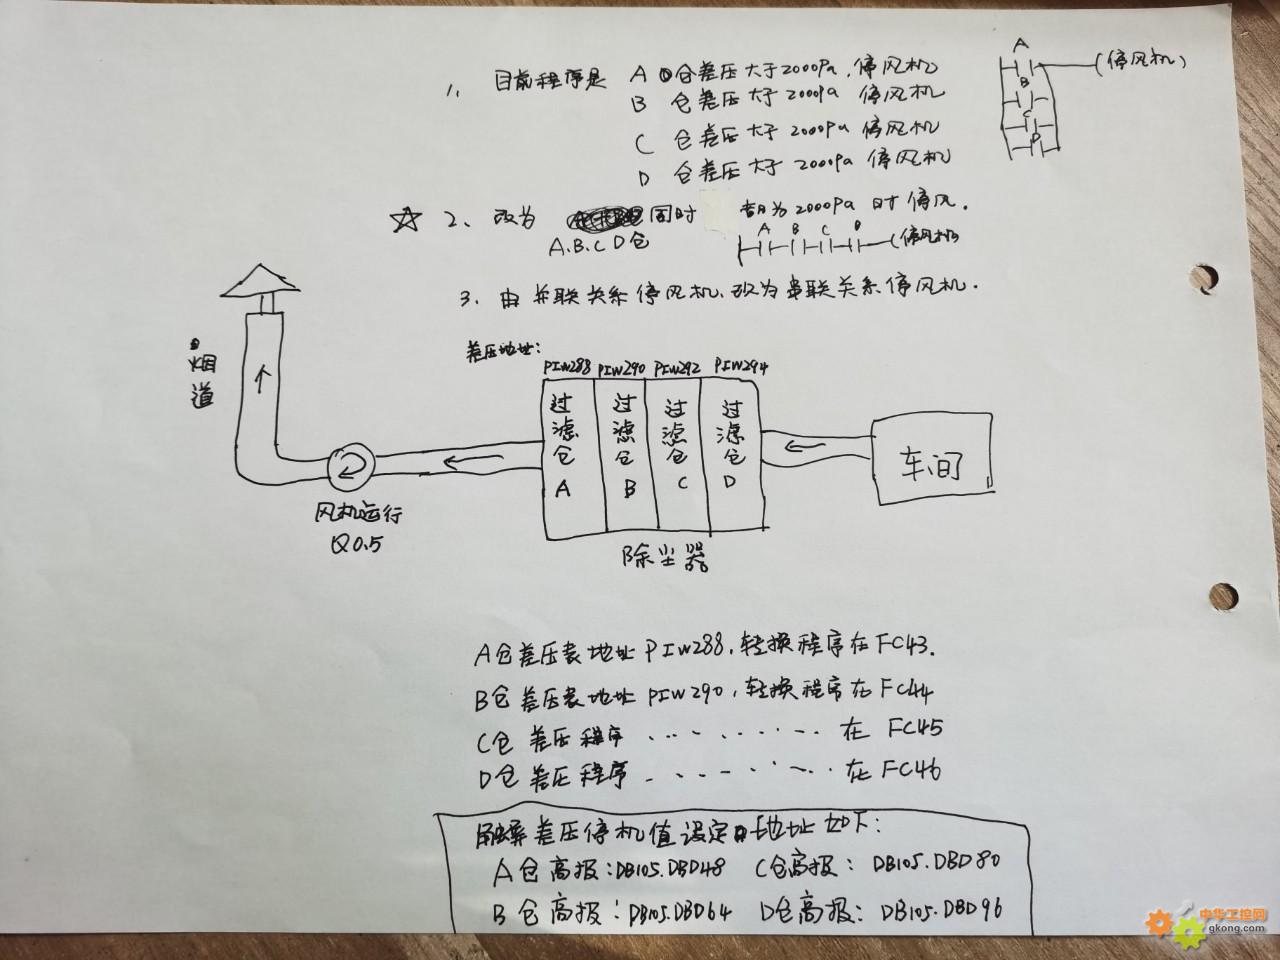 1、目前程序是 A 仓差压大于2000Pa,停风机
B 仓差压大于2000Pa 停风机
C 仓差压大于2000Pa 停风机
D 仓差压大于2000Pa 停风机
A
B
C
D
(停风机)
☆ 2、改为 同时 都为2000Pa时停风.
A.B.C D仓
A B C D
(停风机)
3、由并联关系停风机,改为串联关系停风机.
差压地址:
PIW288 PIW290 PIW292 PIW294
烟道
过滤仓A
过滤仓B
过滤仓C
过滤仓D
车间
风机运行
Q0.5
除尘器
A仓差压表地址PIW288,转换程序在FC43.
B仓差压表地址PIW290,转换程序在FC44
C仓差压程序 ········· 在FC45
D仓差压程序 ········· 在FC46
触屏差压停机值设定 地址如下:
A仓高报:DB105.DBD48 C仓高报:DB105.DBD80
B仓高报:DB105.DBD64 D仓高报:DB105.DBD96
中华工控网
gkong.com